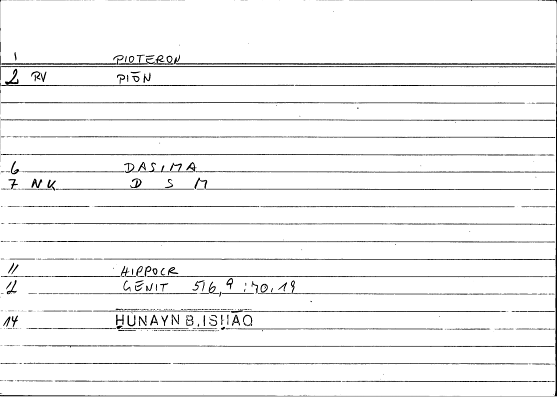 1 PIOTERON
2 RV PIŌN
6 DASIMA
7 NK D S M
11 HIPPOCR
12 GENIT 516,9 : 40,19
14 ḤUNAYN B. ISḤĀQ